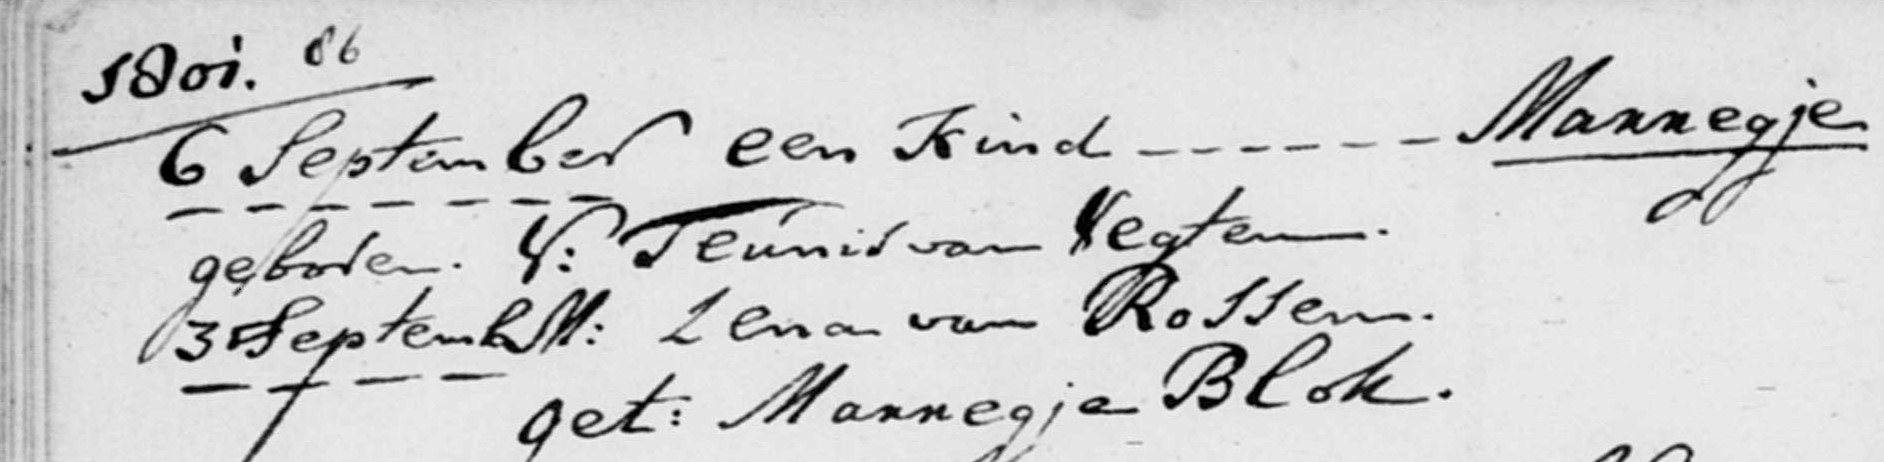 1801. 86
6 September een Kind ------ Mannegje
geboren. V: Teunis van Vegten.
3 Septemb M: Lena van Rossem.
get: Mannegje Blok.